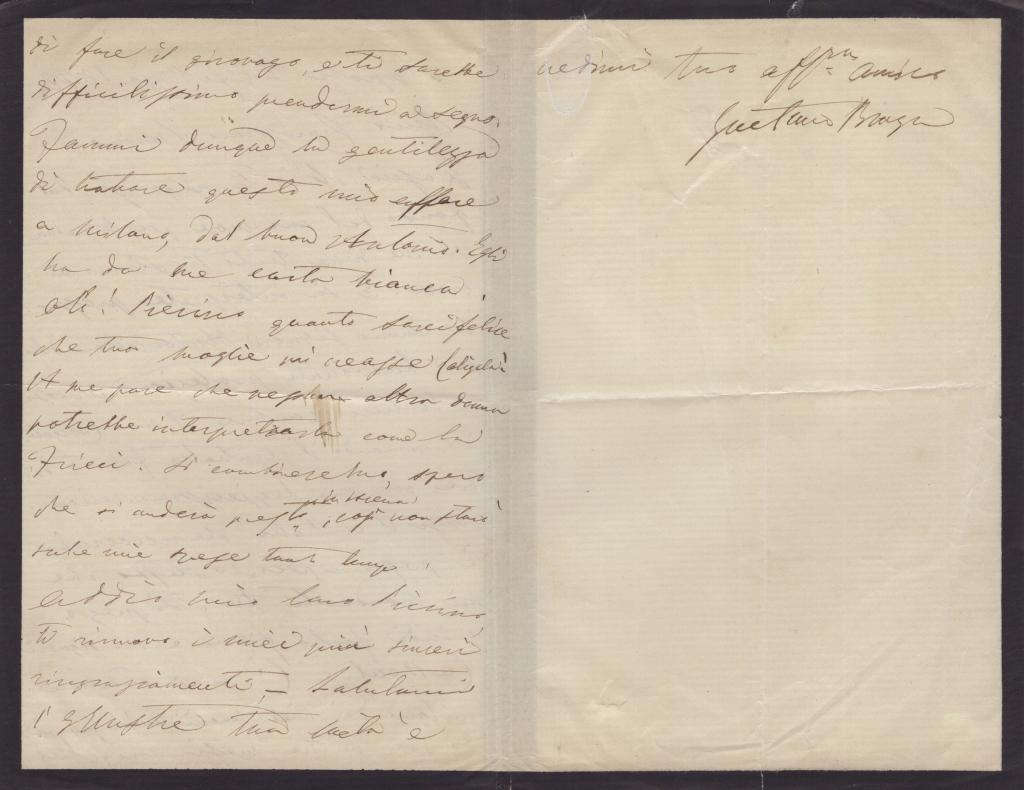 di fare il girovago, e ti sarebbe
difficilissimo prendermi a segno.
Fammi dunque la gentilezza
di trattare questo mio affare
a Milano, dal buon Antonio. Egli
ha da me carta bianca.
Oh! Pierino quanto sarei felice
che tua moglie mi creasse Caligola!
A me pare che nessuna altra donna
potrebbe interpretarla come la
Fricci. Si combinerebbe, spero
che si anderà presto in scena, così non starò
sulle mie spese tanto tempo!
Addio mio caro Pierino,
ti rinnovo i miei più sinceri
ringraziamenti, – Salutami
l'illustre tua metà e
credimi tuo aff.mo amico
Gaetano Braga